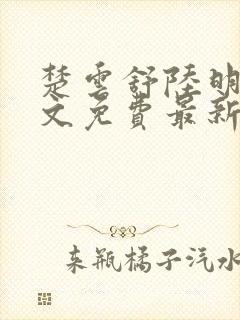 楚雲舒陸明
文免費最新
来瓶橘子汽水